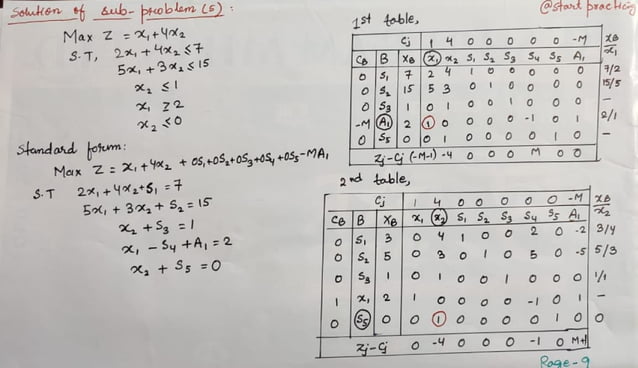 Solution of sub-problem (5):
Max Z = x₁+4x₂
S.T, 2x₁+4x₂≤7
5x₁+3x₂≤15
x₂ ≤1
x₁ ≥2
x₂ ≤0
Standard form:
Max Z = x₁+4x₂ + 0S₁+0S₂+0S₃+0S₄+0S₅-MA₁
S.T 2x₁+4x₂+S₁=7
5x₁+3x₂+S₂=15
x₂+S₃=1
x₁-S₄+A₁=2
x₂+S₅=0
@start practicing
1st table,
Cj 1 4 0 0 0 0 0 -M XB
CB B XB x₁ x₂ S₁ S₂ S₃ S₄ S₅ A₁ x₁
0 S₁ 7 2 4 1 0 0 0 0 0 7/2
0 S₂ 15 5 3 0 1 0 0 0 0 15/5
0 S₃ 1 0 1 0 0 1 0 0 0 -
-M A₁ 2 1 0 0 0 0 -1 0 1 2/1
0 S₅ 0 0 1 0 0 0 0 1 0 -
Zj-Cj (-M-1) -4 0 0 0 M 0 0
2nd table,
Cj 1 4 0 0 0 0 0 -M XB
CB B XB x₁ x₂ S₁ S₂ S₃ S₄ S₅ A₁ x₂
0 S₁ 3 0 4 1 0 0 2 0 -2 3/4
0 S₂ 5 0 3 0 1 0 5 0 -5 5/3
0 S₃ 1 0 1 0 0 1 0 0 0 1/1
1 x₁ 2 1 0 0 0 0 -1 0 1 -
0 S₅ 0 0 1 0 0 0 0 1 0 0
Zj-Cj 0 -4 0 0 0 -1 0 M+1
Page-9